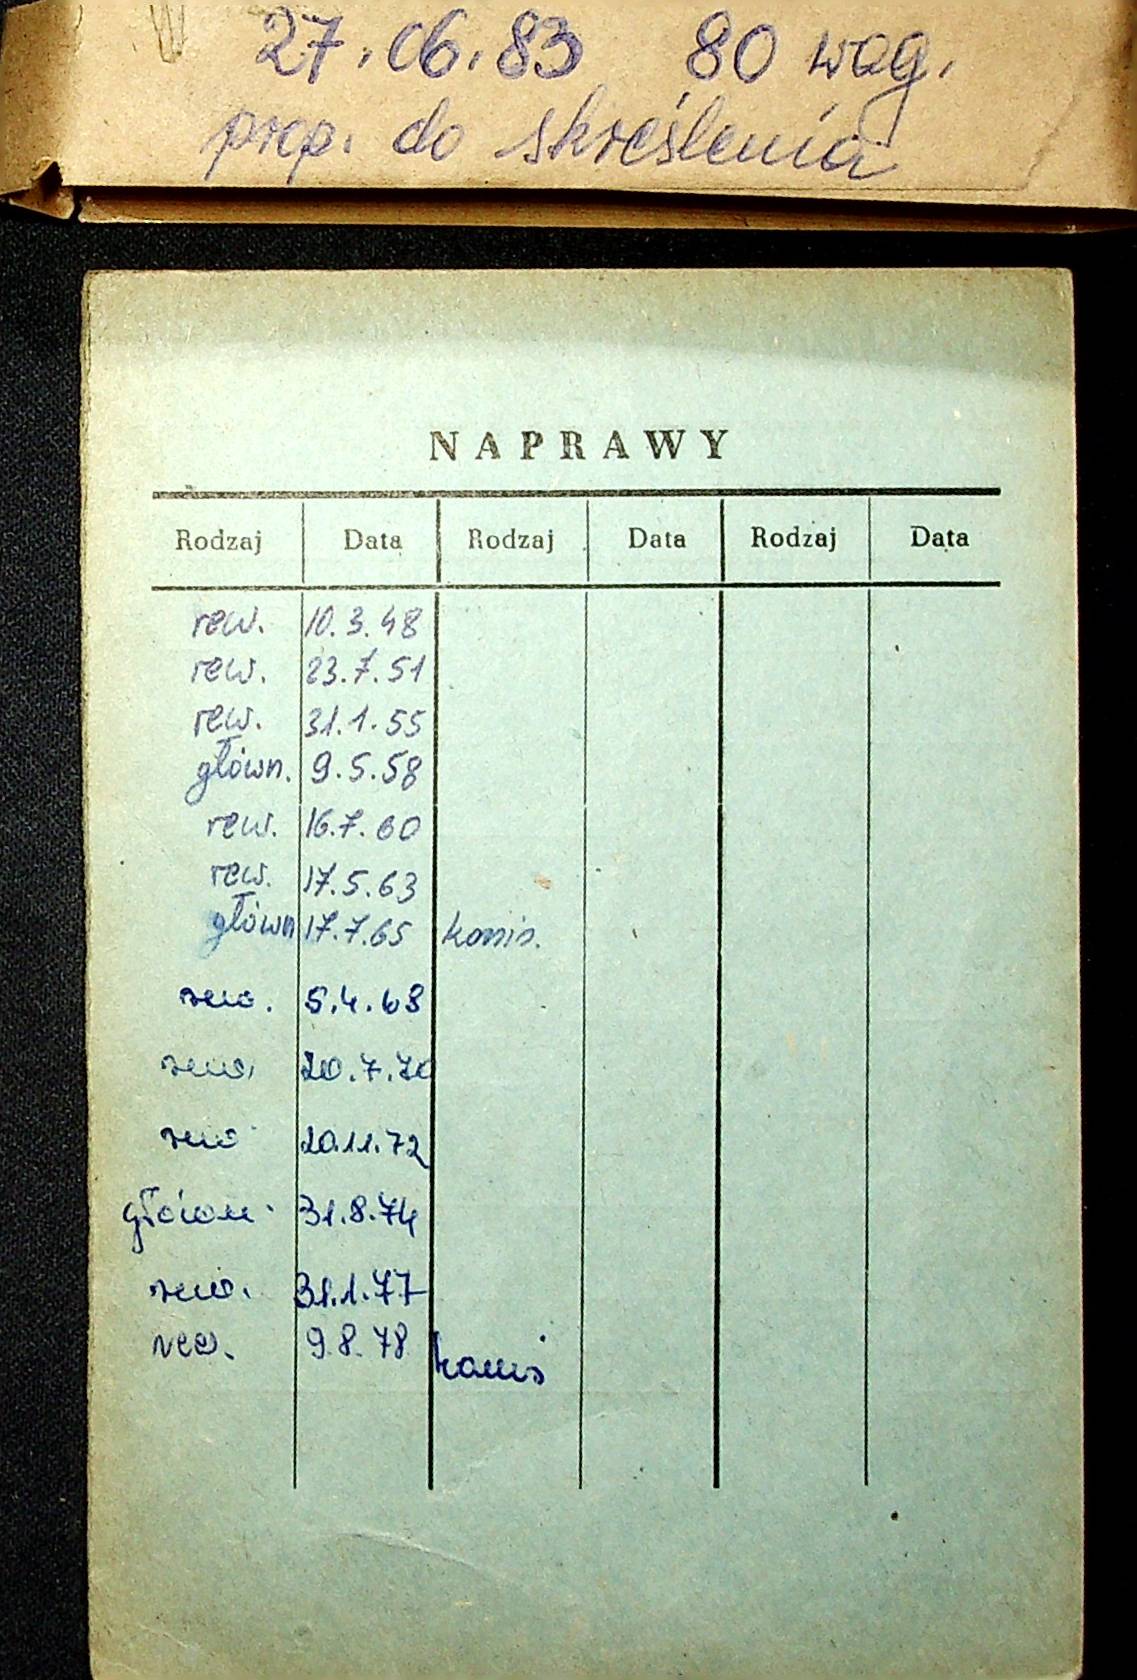 27.06.83 80 wag.
prop. do skreślenia
NAPRAWY
Rodzaj Data Rodzaj Data Rodzaj Data
rew. 10.3.48
rew. 23.7.51
rew. 31.1.55
główn. 9.5.58
rew. 16.7.60
rew. 17.5.63
główn 17.7.65 komis.
rew. 5.4.68
rew. 20.7.70
rew 20.11.72
główn. 31.8.74
rew. 31.1.77
rew. 9.8.78 komis